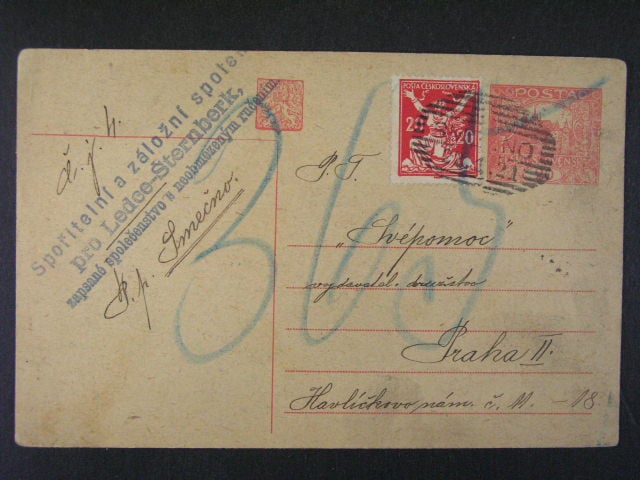 Spořitelní a záložní spole
pro Ledce-Šternberk,
zapsané společenstvo s neobmezeným ručením
Č. j. 4.
Smečno.
POŠTA ČESKOSLOVENSKÁ
20 20
POŠTA
NO
21
365
P. T.
„Svépomoc"
vydavatel. družstvo
Praha II.
Havlíčkovo nám. č. 11. - 18